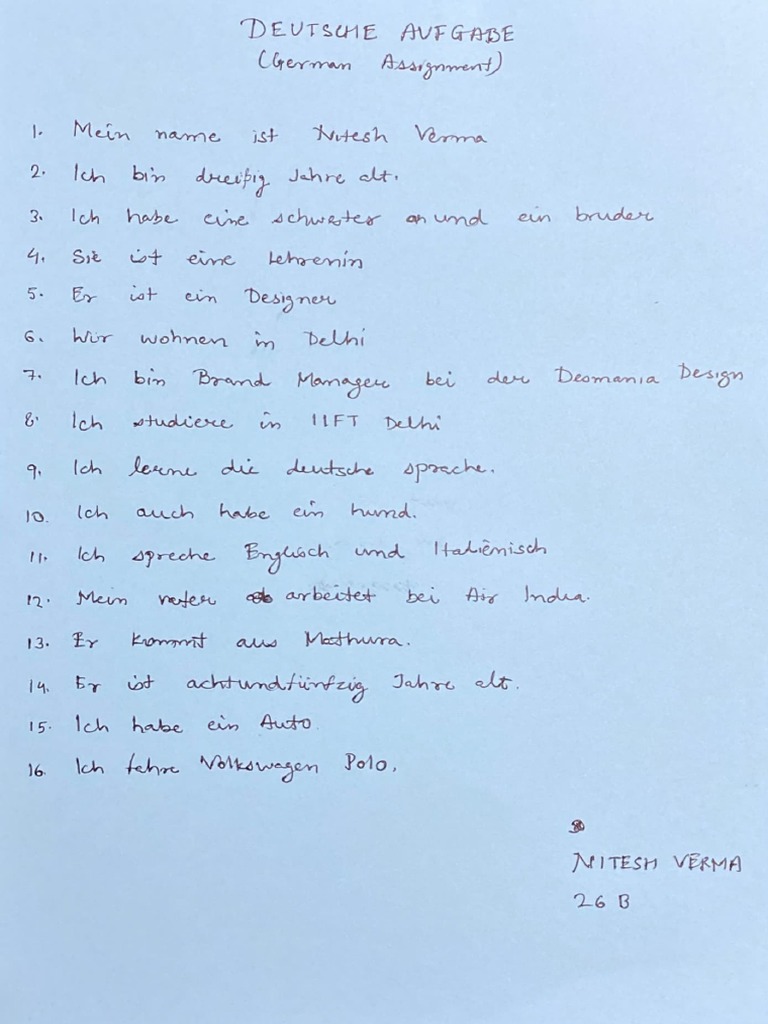 DEUTSCHE AUFGABE
(German Assignment)
1. Mein name ist Nitesh Verma
2. Ich bin dreißig Jahre alt.
3. Ich habe eine schwester und ein bruder
4. Sie ist eine Lehrenin
5. Er ist ein Designer
6. Wir wohnen in Delhi
7. Ich bin Brand Manager bei der Desmania Design
8. Ich studiere in IIFT Delhi
9. Ich lerne die deutsche sprache.
10. Ich auch habe ein hund.
11. Ich spreche Englisch und Italiēnisch
12. Mein vater arbeitet bei Air India.
13. Er kommt aus Mathura.
14. Er ist achtundfünfzig Jahre alt.
15. Ich habe ein Auto
16. Ich fahre Volkswagen Polo.
NITESH VERMA
26 B